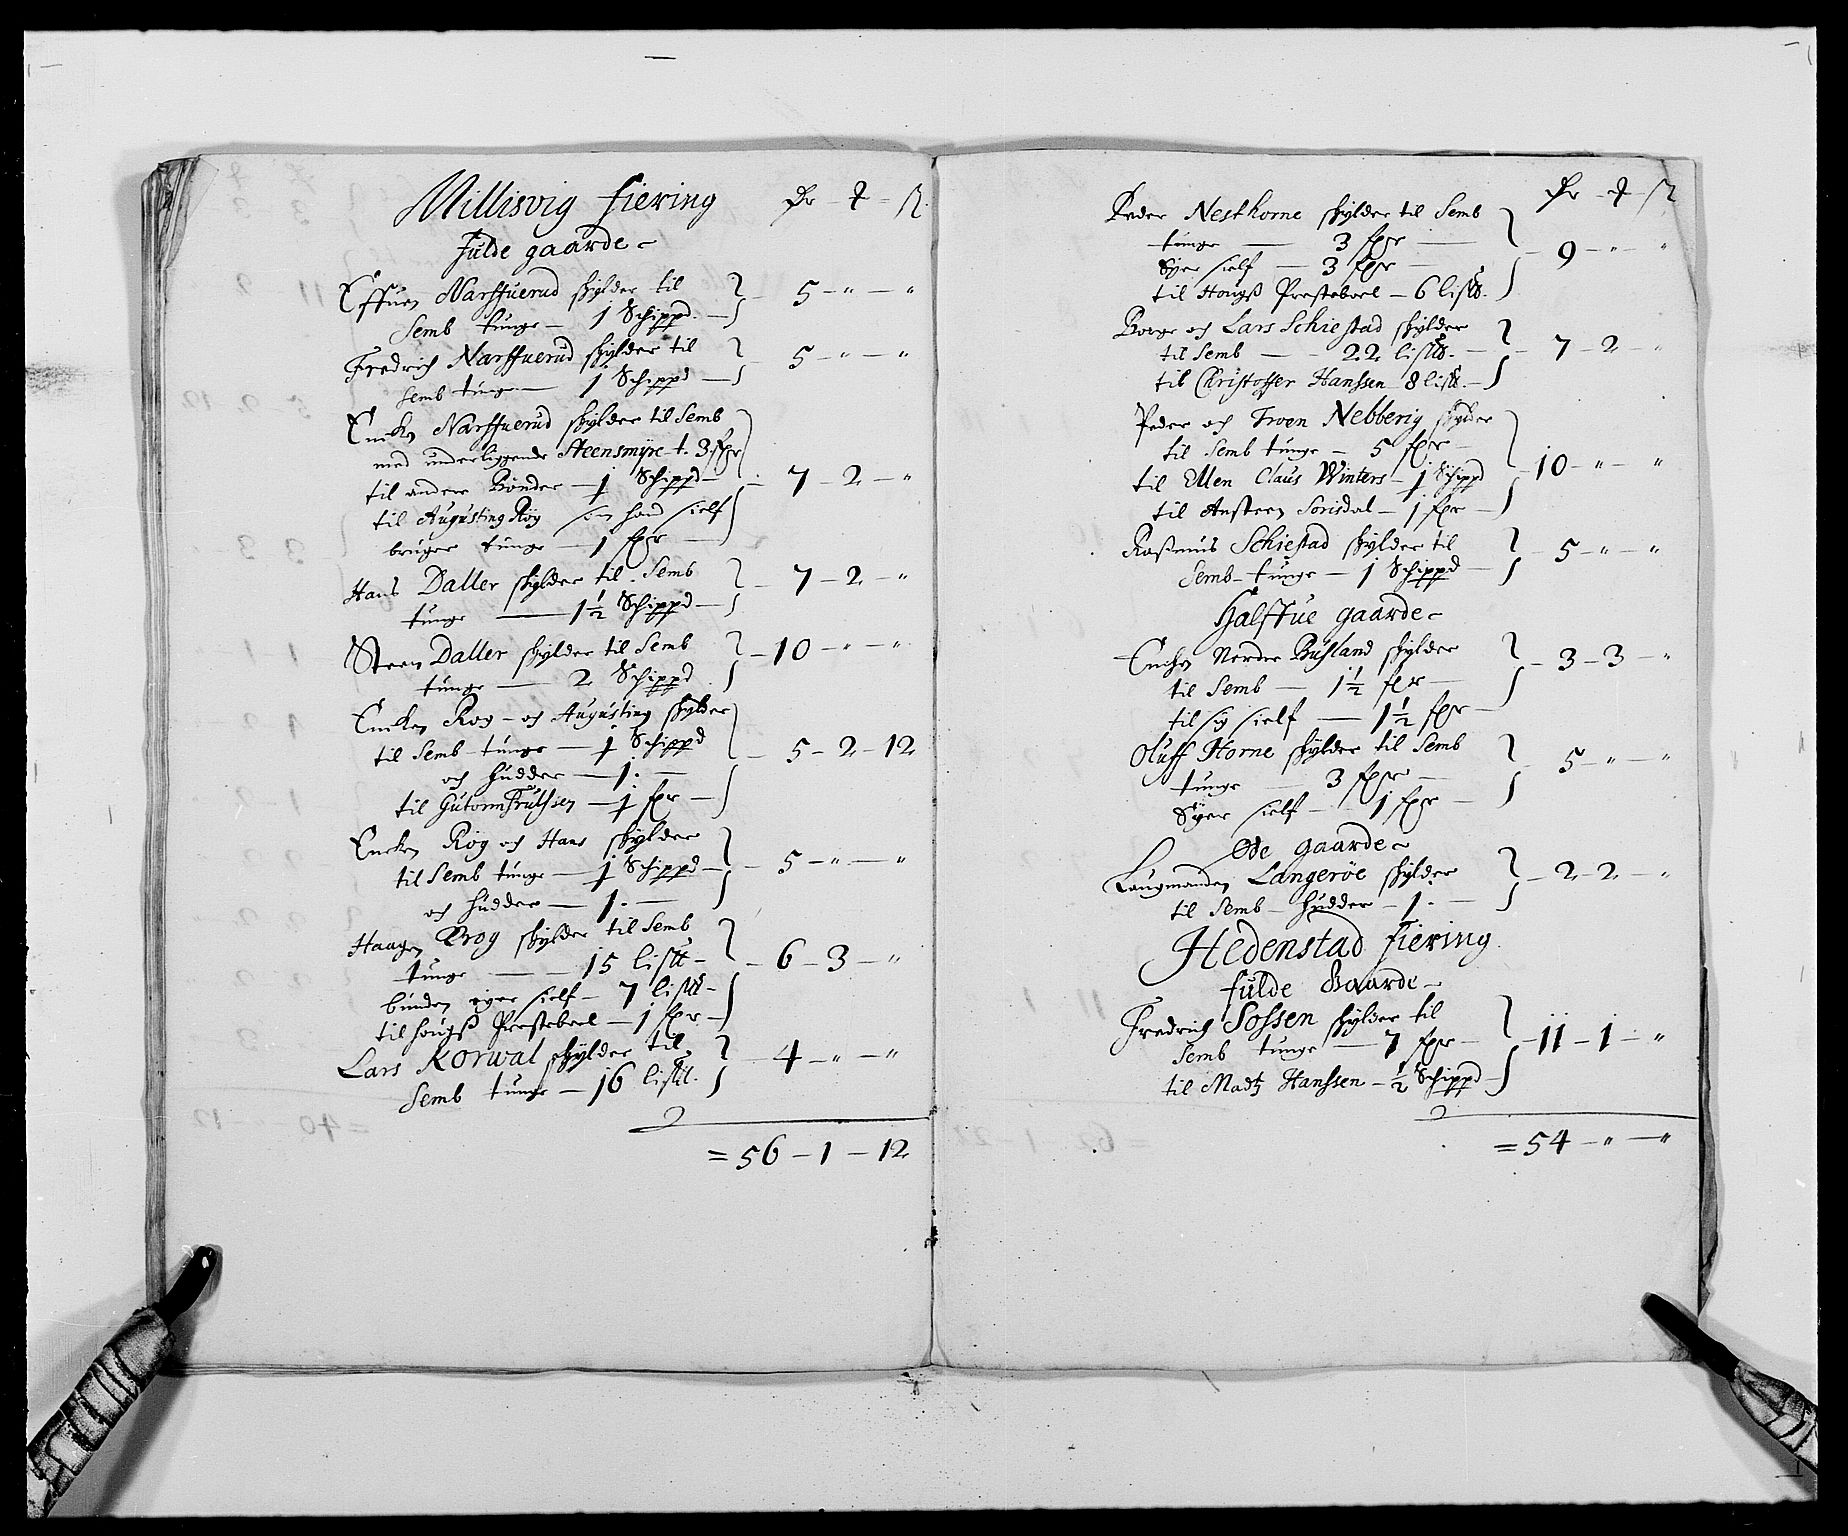 Millisvig fiering Dr - # - ß
fulde gaarde -
Effuen Narffuerud skylder til
Semb tunge - 1 Schippd - 5 - " - "
Fredrich Narffuerud skylder til
Semb tunge - 1 Schippd - 5 - " - "
Encken Narffuerud skylder til Semb
med underliggende Steensmyre - t. 3 fpr
til andre Bønder - 1 Schippd - 7 - 2 - "
til Augusting Røy som hand sielf
bruger tunge - 1 fpr -
Hans Daller skylder til Semb
tunge - 1½ Schippd - 7 - 2 - "
Steen Daller skylder til Semb
tunge - 2 Schippd - 10 - " - "
Encken Roy - och Augusting skylder
til Semb tunge - 1 Schippd - 5 - 2 - 12
och hudder - 1 · -
til Gutorm Trulsien - 1 fpr -
Encken Røy och Hans skylder
til Semb tunge - 1 Schippd - 5 - " - "
och hudder - 1 · -
Haagen Roy skylder til Semb
tunge - 15 listt - 6 - 3 - "
bunden eyer sielf - 7 listt -
til hougß Presteboel - 1 fpr -
Lars Korwal skylder til
Semb tunge - 16 listt. - 4 - " - "
= 56 - 1 - 12
Dr - # - ß
Peder Nesthorne skylder til Semb
tunge - 3 fpr - 9 - " - "
Eyer sielf - 3 fpr -
til Hougß Presteboel - 6 listt.
Borge och Lars Schiestad skylder
til Semb - 22 listt. - 7 - 2 - "
til Christoffer Hanssen 8 listt. -
Peder och Iwen Nebberig skylder
til Semb tunge - 5 fpr -
til Ellen Claus Winters - 1 Schippd - 10 - " - "
til Ansteen Sorisdal - 1 fpr -
Raßmus Schiestad skylder til
Semb - tunge - 1 Schippd - 5 - " - "
Halffue gaarde -
Encken Nerdre Busland skylder
til Semb - 1½ fpr - 3 - 3 - "
til sig sielf - 1½ fpr -
Oluff Horne skylder til Semb
tunge - 3 fpr - 5 - " - "
Eyer sielf - 1 fpr -
Øde gaarde -
Laugmanden Langerøe skylder
til Semb - hudder - 1 · - 2 - 2 - "
Hedenstad fiering
fulde Gaarde -
Fredrich Sossen skylder til
Semb tunge - 7 fpr - 11 - 1 - "
til Madtz Hanssen - ½ Schippd -
= 54 - " - "